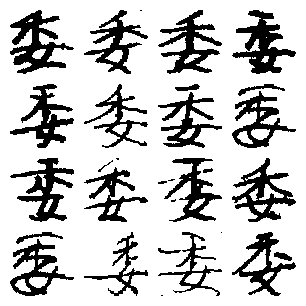 委委委委
委委委委
委委委委
委委委委